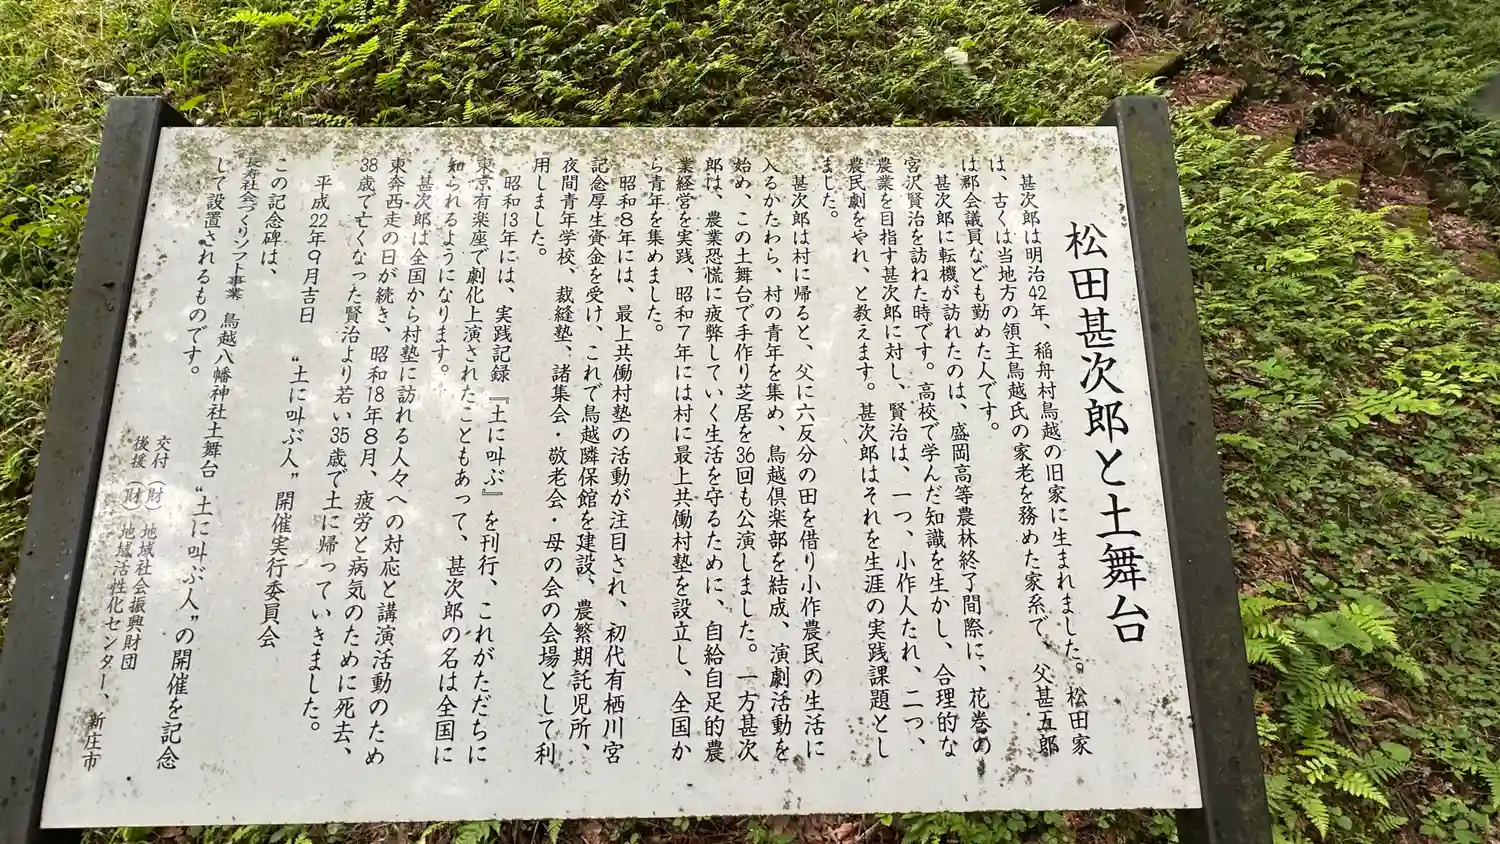 松田甚次郎と土舞台
甚次郎は明治42年、稲舟村鳥越の旧家に生まれました。松田家
は、古くは当地方の領主鳥越氏の家老を務めた家系で、父甚五郎
は郡会議員なども勤めた人です。
甚次郎に転機が訪れたのは、盛岡高等農林終了間際に、花巻の
宮沢賢治を訪ねた時です。高校で学んだ知識を生かし、合理的な
農業を目指す甚次郎に対し、賢治は、一つ、小作人たれ、二つ、
農民劇をやれ、と教えます。甚次郎はそれを生涯の実践課題とし
ました。
甚次郎は村に帰ると、父に六反分の田を借り小作農民の生活に
入るかたわら、村の青年を集め、鳥越倶楽部を結成、演劇活動を
始め、この土舞台で手作り芝居を36回も公演しました。一方甚次
郎は、農業恐慌に疲弊していく生活を守るために、自給自足的農
業経営を実践、昭和7年には村に最上共働村塾を設立し、全国か
ら青年を集めました。
昭和8年には、最上共働村塾の活動が注目され、初代有栖川宮
記念厚生資金を受け、これで鳥越隣保館を建設、農繁期託児所、
夜間青年学校、裁縫塾、諸集会・敬老会・母の会の会場として利
用しました。
昭和13年には、実践記録『土に叫ぶ』を刊行、これがただちに
東京有楽座で劇化上演されたこともあって、甚次郎の名は全国に
知られるようになります。
甚次郎は全国から村塾に訪れる人々への対応と講演活動のため
東奔西走の日が続き、昭和18年8月、疲労と病気のために死去、
38歳で亡くなった賢治より若い35歳で土に帰っていきました。
平成22年9月吉日
“土に叫ぶ人”開催実行委員会
この記念碑は、
長寿社会づくりソフト事業 鳥越八幡神社土舞台“土に叫ぶ人”の開催を記念
して設置されるものです。
交付 (財) 地域社会振興財団
後援 (財) 地域活性化センター、新庄市